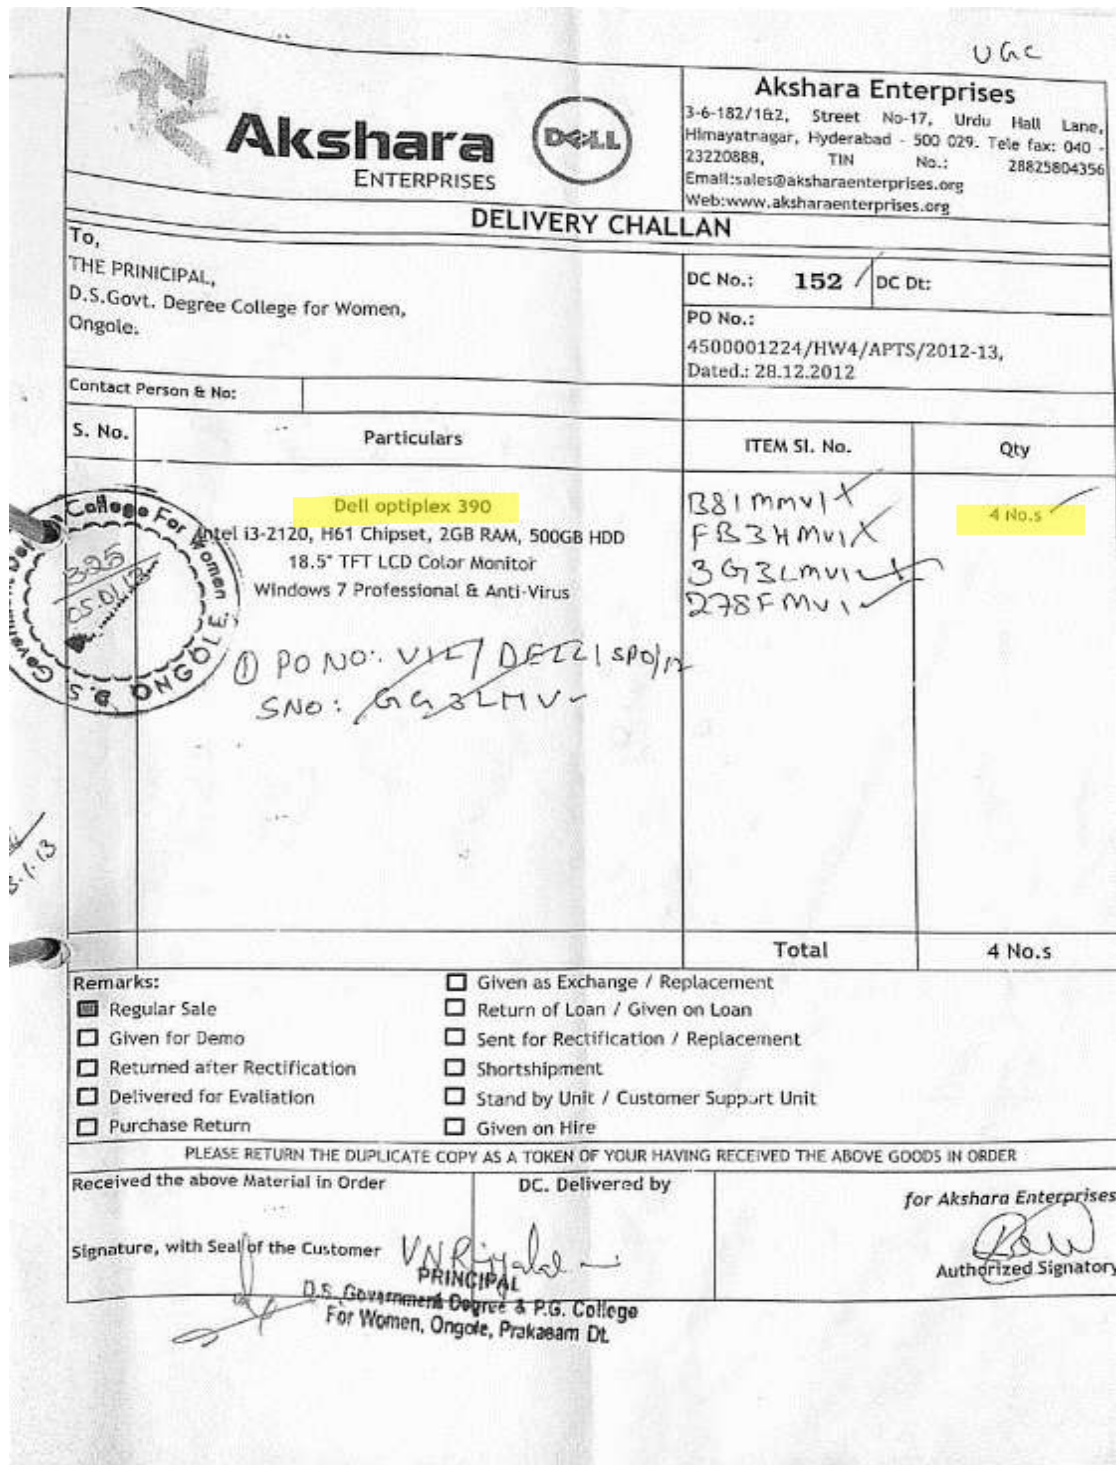 UGC
Akshara
ENTERPRISES
DELL
Akshara Enterprises
3-6-182/1&2, Street No-17, Urdu Hall Lane,
Himayatnagar, Hyderabad - 500 029. Tele fax: 040 -
23220888, TIN No.: 28825804356
Email:sales@aksharaenterprises.org
Web:www.aksharaenterprises.org
DELIVERY CHALLAN
To,
THE PRINICIPAL,
D.S.Govt. Degree College for Women,
Ongole.
DC No.: 152 / DC Dt:
PO No.:
4500001224/HW4/APTS/2012-13,
Dated.: 28.12.2012
Contact Person & No:
S. No. Particulars ITEM Sl. No. Qty
Dell optiplex 390 4 No.s
Intel i3-2120, H61 Chipset, 2GB RAM, 500GB HDD
18.5" TFT LCD Color Monitor
Windows 7 Professional & Anti-Virus
B81MMV1
FB3HMV1
3G3LMV1
278FMV1
College For Women
ONGOLE
D.S.
325
05.01.13
① PO NO: VIL/DELL/SPO/12
SNO: GG3LMV
Total 4 No.s
Remarks:
Regular Sale
Given for Demo
Returned after Rectification
Delivered for Evaliation
Purchase Return
Given as Exchange / Replacement
Return of Loan / Given on Loan
Sent for Rectification / Replacement
Shortshipment
Stand by Unit / Customer Support Unit
Given on Hire
PLEASE RETURN THE DUPLICATE COPY AS A TOKEN OF YOUR HAVING RECEIVED THE ABOVE GOODS IN ORDER
Received the above Material in Order
Signature, with Seal of the Customer
DC. Delivered by
for Akshara Enterprises
Authorized Signatory
PRINCIPAL
D.S. Government Degree & P.G. College
For Women, Ongole, Prakasam Dt.